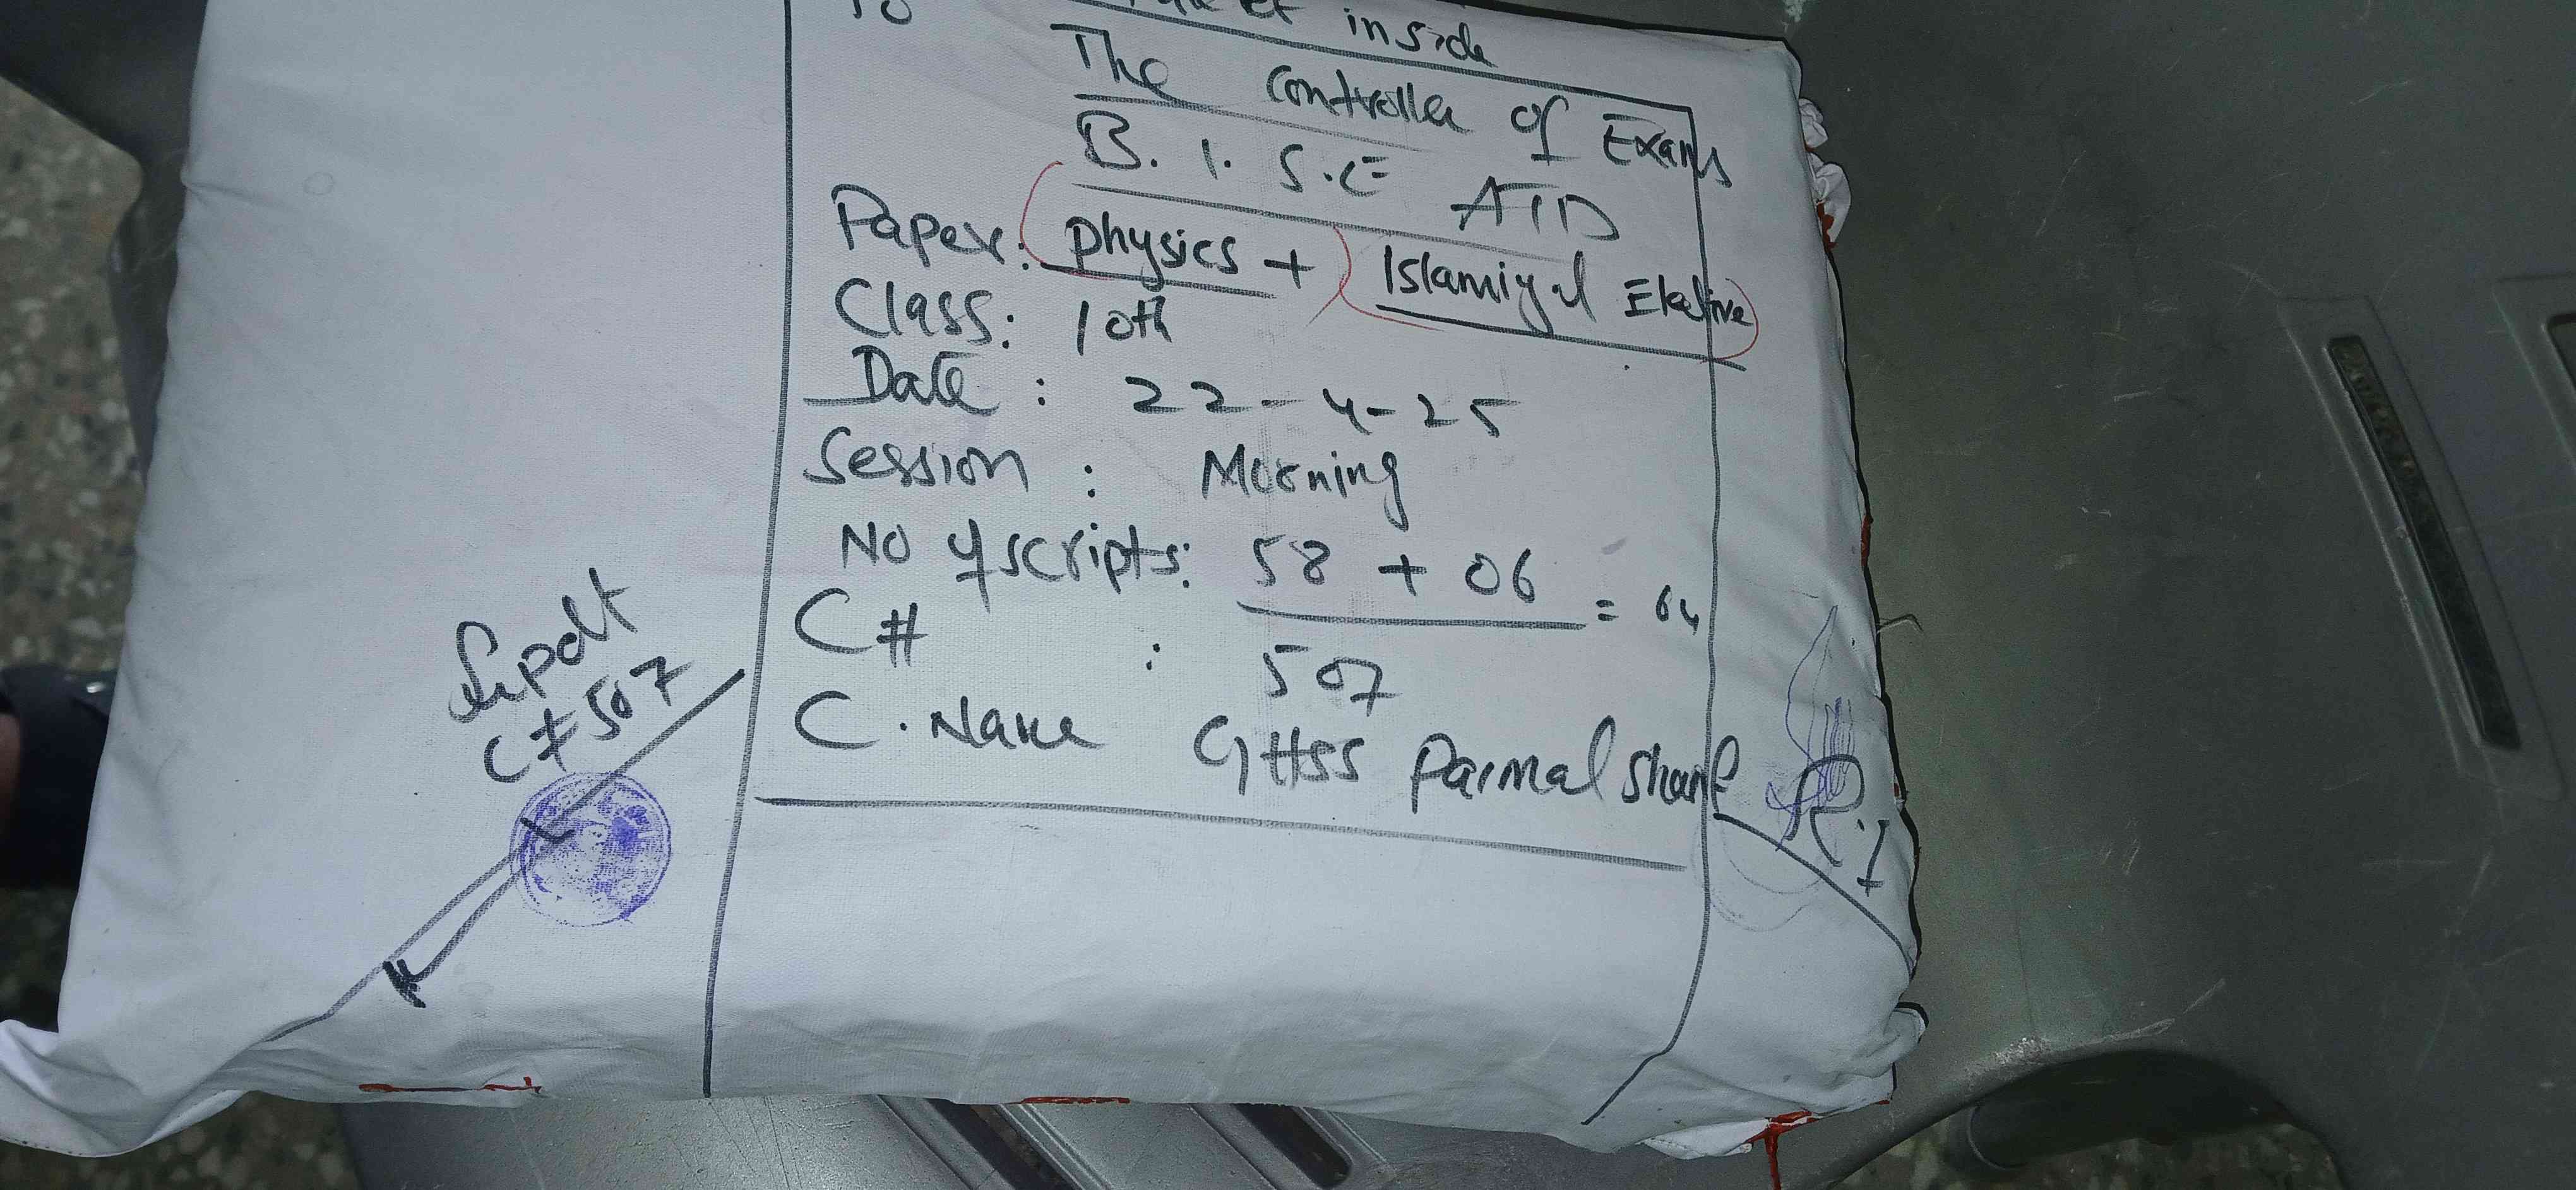 To
inside
The Controller of Exams
B. I. S. E ATD
Paper: Physics + Islamiyat Elective
Class: 10th
Date : 22-4-25
Session : Morning
No of scripts: 58 + 06 = 64
C# : 507
C. Name GHSS Parmal Sharif
Supdt
C# 507
R.I